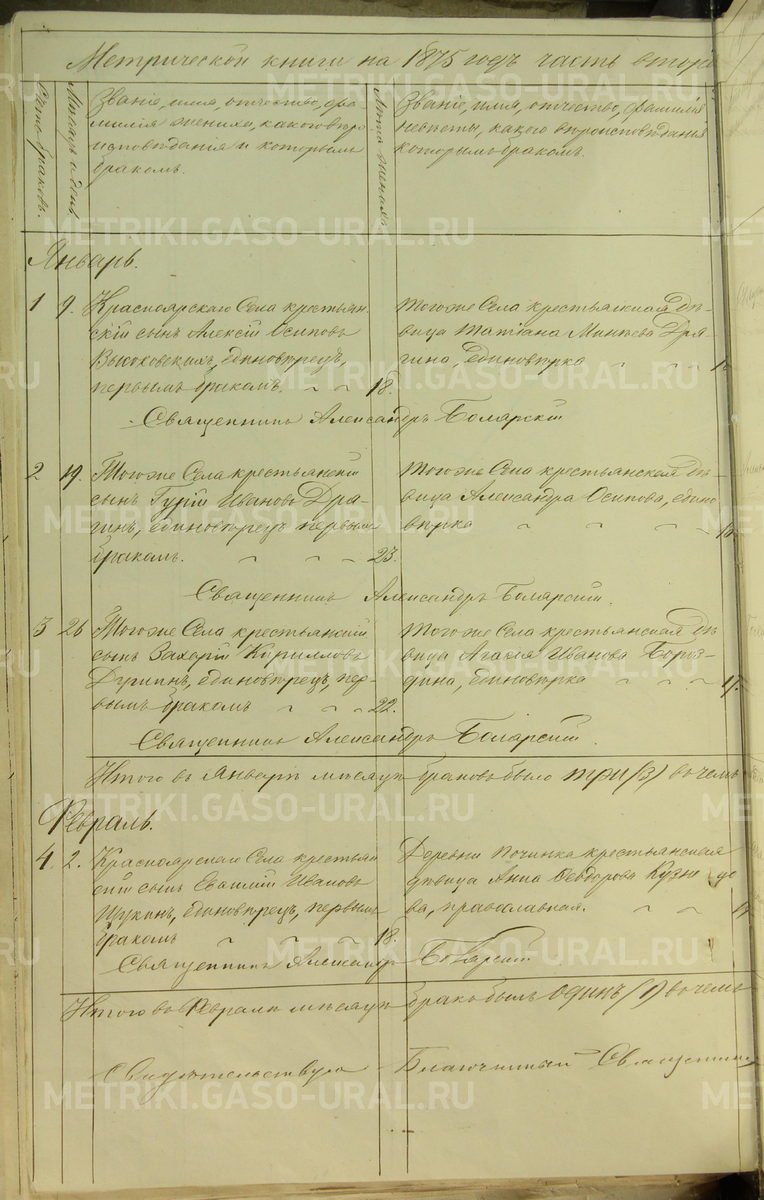 Метрической книги на 1875 годъ часть втора
Счетъ браковъ.
Месяцъ и день
Званіе, имя, отчество, фа-
милія жениха, какого веро-
исповѣданія и которымъ
бракомъ.
Лета жениха
Званіе, имя, отчество, фамилія
невѣсты, какого вероисповѣданія
которымъ бракомъ.
Январь.
1 9. Красноярскаго Села крестьян-
скій сынъ Алексій Осиповъ
Высоковскихъ, единовѣрецъ,
первымъ бракомъ. 18.
Того же Села крестьянская дѣ-
вица Татіана Минѣева Дря-
гина, единовѣрка
Священникъ Александръ Болярскій
2 19. Того же Села крестьянскій
сынъ Гурій Ивановъ Дря-
гинъ, единовѣрецъ, первымъ
бракомъ. 23.
Того же Села крестьянская дѣ-
вица Александра Осипова, едино-
вѣрка
Священникъ Александръ Болярскій.
3 26 Того же Села крестьянскій
сынъ Захарій Кирилловъ
единовѣрецъ, пер-
вымъ бракомъ 22.
Того же Села крестьянская дѣ-
вица Агафія Иванова Бороз-
дина, единовѣрка 17.
Священникъ Александръ Болярскій.
Итого въ Январѣ мѣсяцѣ браковъ было три (3) въ чемъ
Февраль.
4. 2. Красноярскаго Села крестьян
скій сынъ Ивановъ
Щукинъ, единовѣрецъ, первымъ
бракомъ 18.
Деревни Починка крестьянская
дѣвица Анна Ѳеодорова Кузнецо
ва, православная.
Священникъ Александръ Болярскій
Итого въ Февралѣ мѣсяцѣ бракъ былъ одинъ (1) въ чемъ
Свидѣтельствую Благочинный Священник
METRIKI.GASO-URAL.RU
METRIKI.GASO-URAL.RU
METRIKI.GASO-URAL.RU
METRIKI.GASO-URAL.RU
METRIKI.GASO-URAL.RU
METRIKI.GASO-URAL.RU
METRIKI.GASO-URAL.RU
METRIKI.GASO-URAL.RU